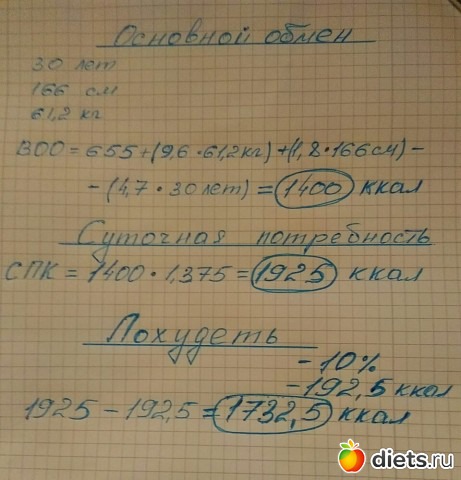 Основной обмен
30 лет
166 см
61,2 кг
ВОО = 655 + (9,6 · 61,2 кг) + (1,8 · 166 см) -
- (4,7 · 30 лет) = 1400 ккал
Суточная потребность
СПК = 1400 · 1,375 = 1925 ккал
Похудеть
- 10%
- 192,5 ккал
1925 - 192,5 = 1732,5 ккал
diets.ru